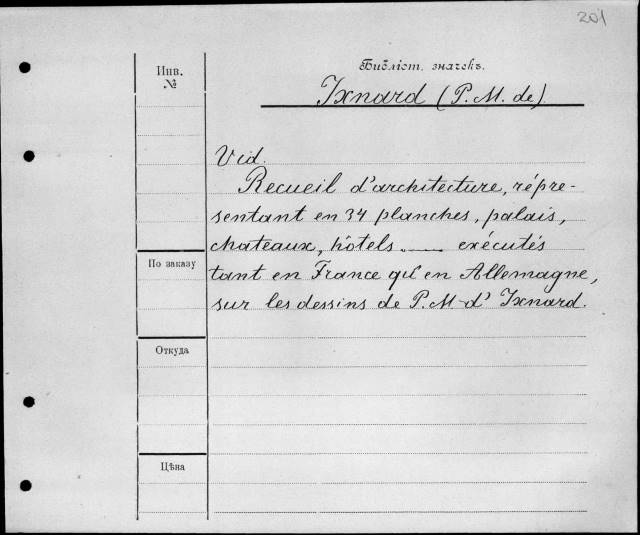 201
Библіот. значекъ.
Инв.
№
Ixnard (P. M. de)
Vid.
Recueil d'architecture, répre-
sentant en 34 planches, palais,
chateaux, hôtels ..... exécutés
По заказу
tant en France qu'en Allemagne,
sur les dessins de P. M d' Ixnard.
Откуда
Цѣна